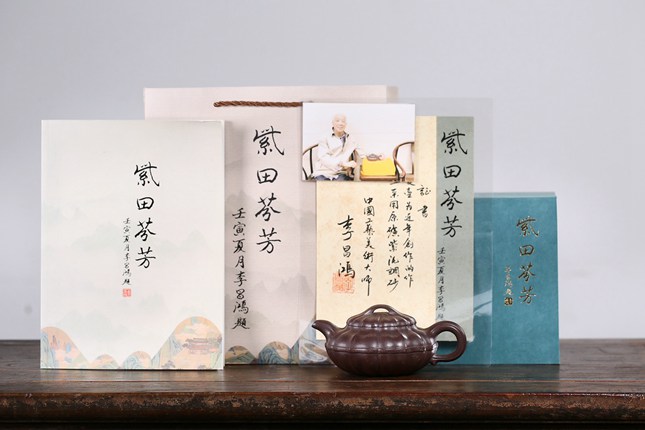 紫田芬芳
壬寅夏月李昌鸿题
紫田芬芳
壬寅夏月李昌鸿题
证书
此壶为近年创作的作
采用原矿紫泥调砂
中国工艺美术大师
李昌鸿
紫田芬芳
壬寅夏月李昌鸿题
紫田芬芳